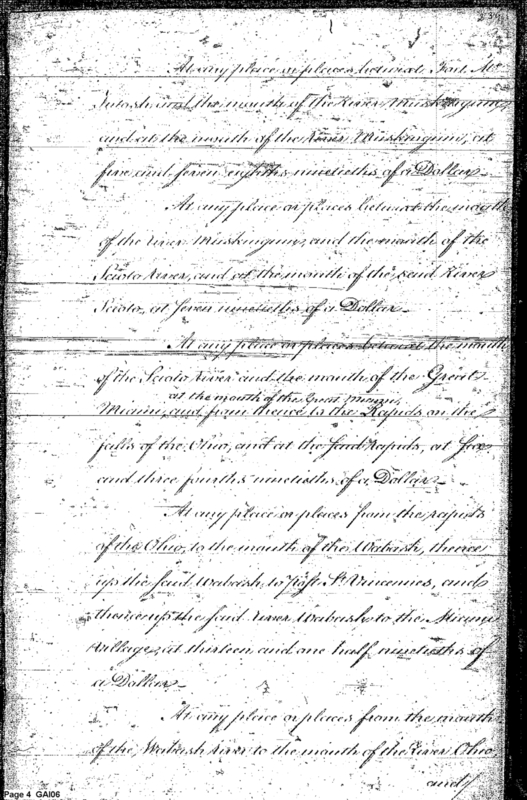 At any place or places betwixt Fort Mc
Intosh and the mouth of the River Muskingum,
and at the mouth of the River Muskingum, at
five and seven eighths ninetieths of a Dollar
At any place or places betwixt the mouth
of the River Muskingum, and the mouth of the
Scioto River, and at the mouth of the said River
Scioto, at seven ninetieths of a Dollar
At any place or places betwixt the mouth
of the Scioto River and the mouth of the Great
at the mouth of the Great Miami,
Miami, and from thence to the Rapids on the
falls of the Ohio, and at the said Rapids, at
and three fourths ninetieths of a Dollar
At any place or places from the rapids
of the Ohio, to the mouth of the Wabash, thence
up the said Wabash to post St Vincennes, and
thence up the said River Wabash to the Miami
village, at thirteen and one half ninetieths of
a Dollar
At any place or places from the mouth
of the Wabash River to the mouth of the River Ohio
and
Page 4 GAI06